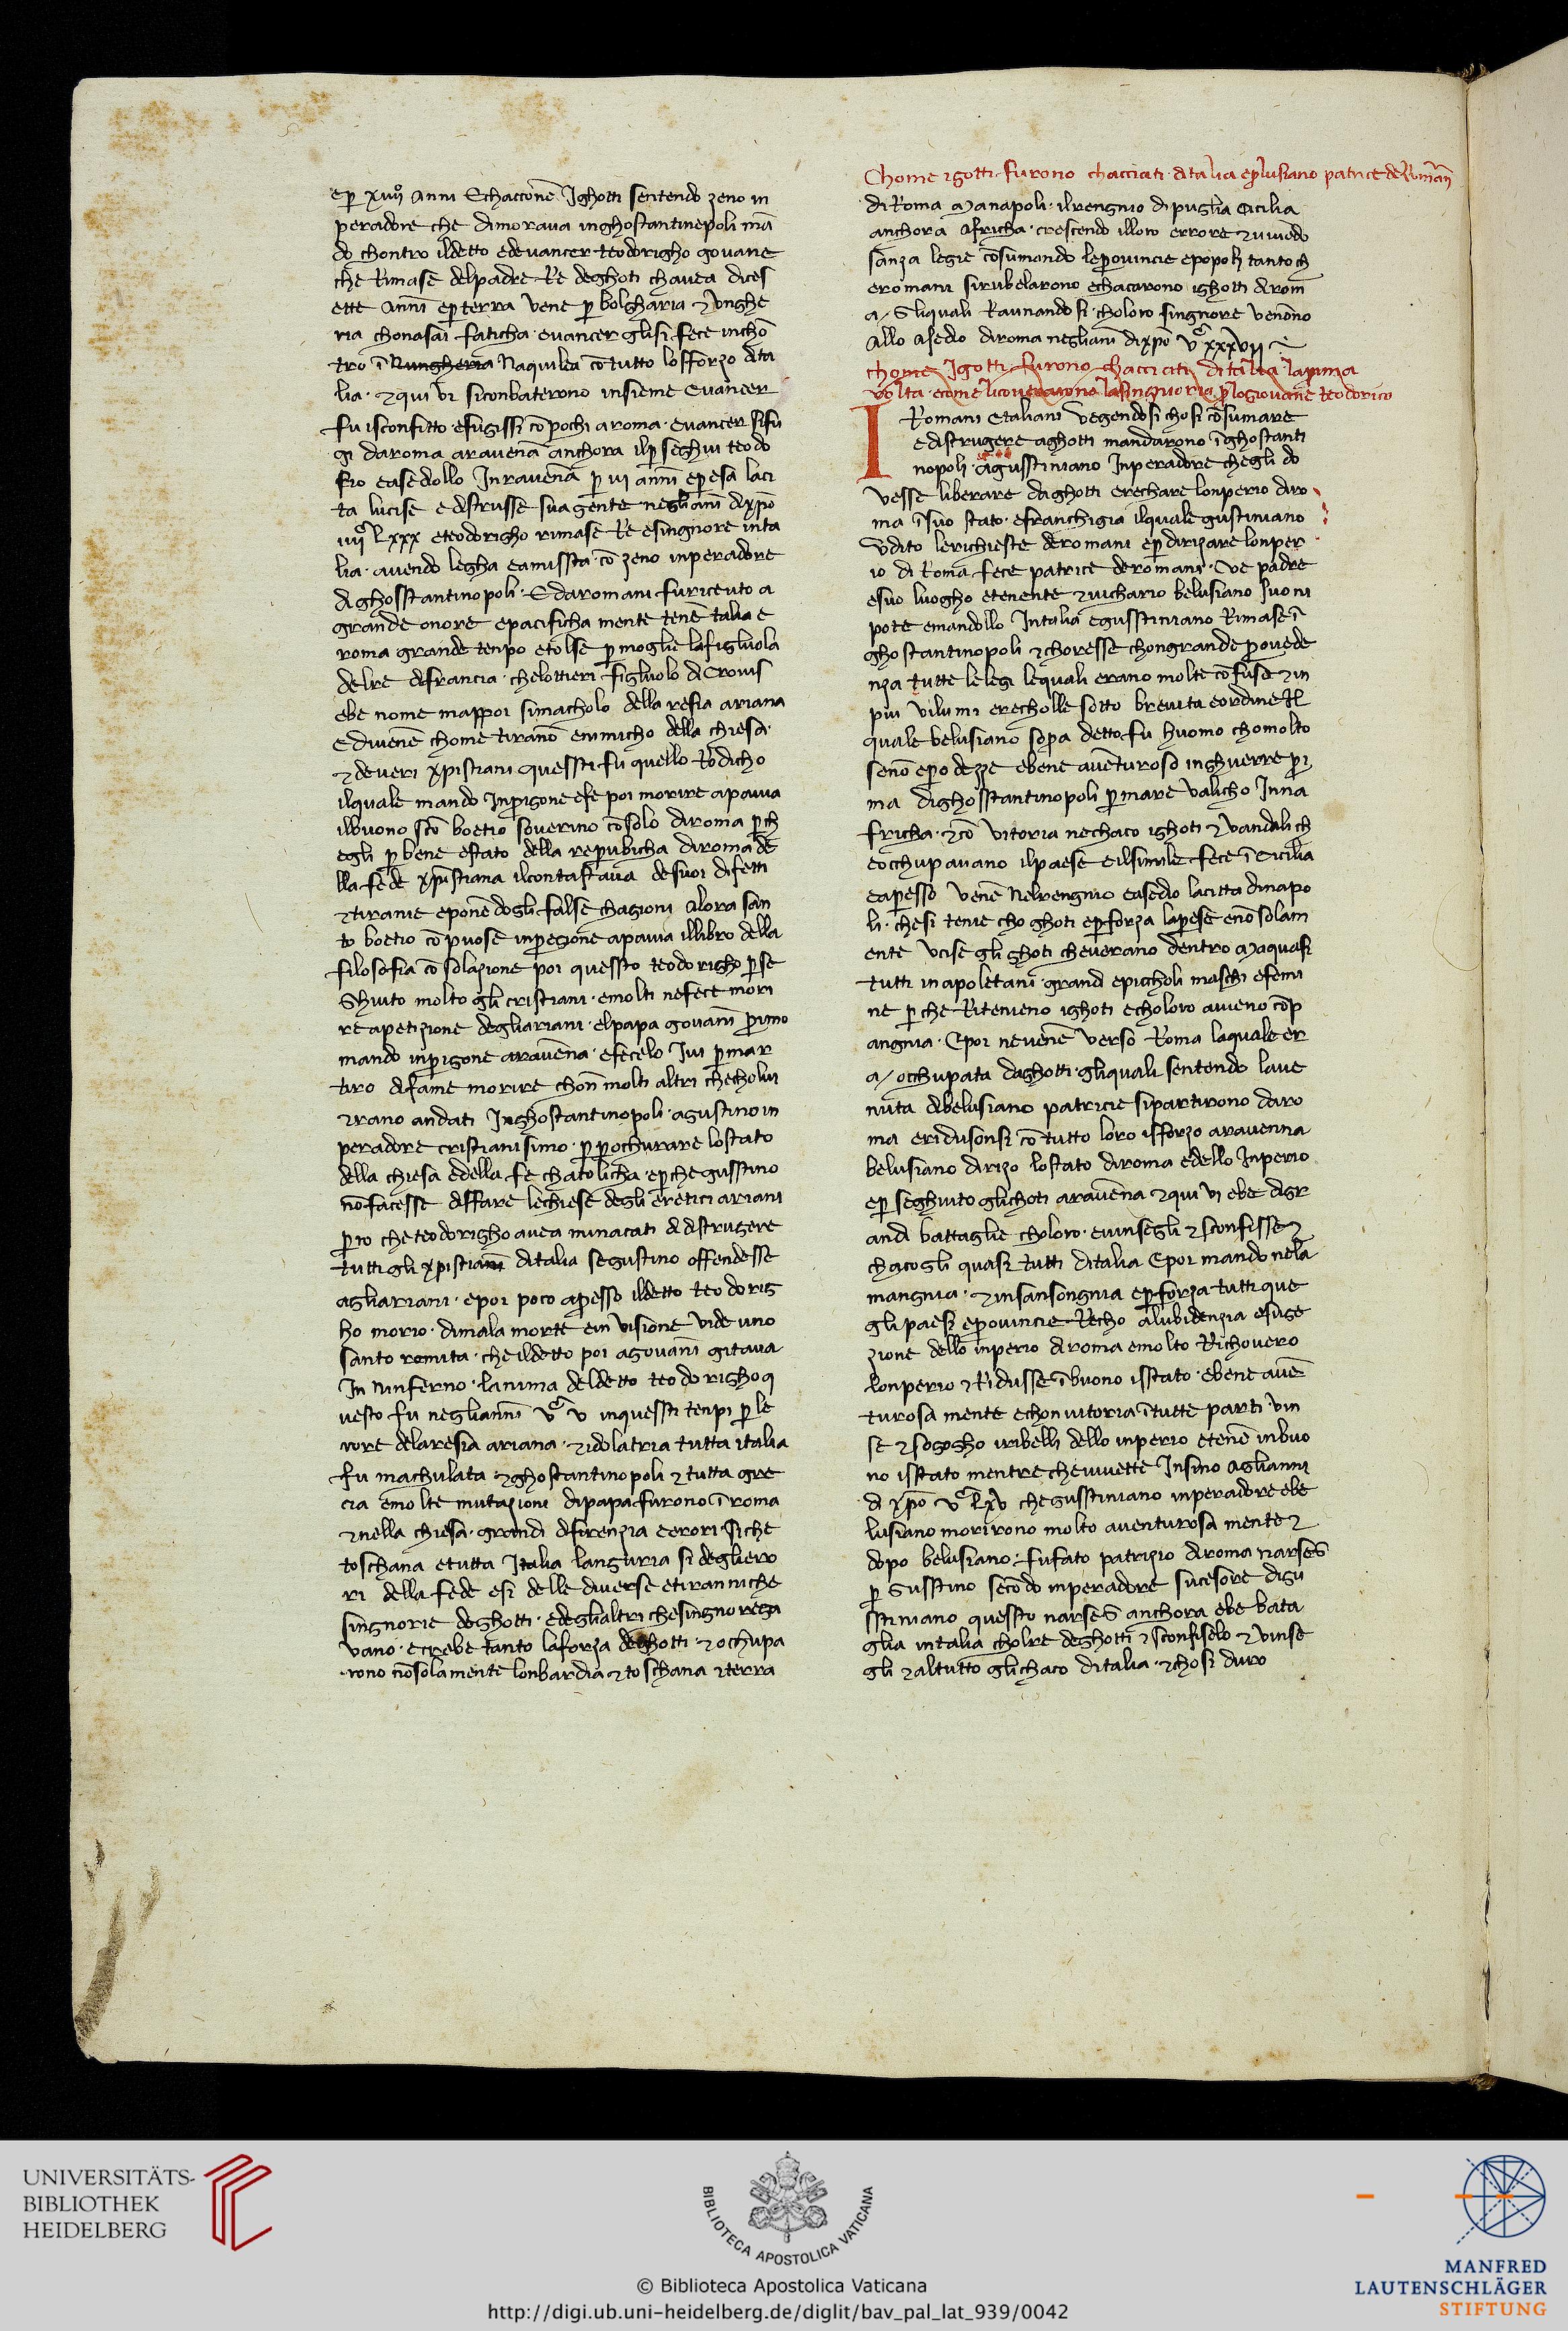 ep xiiij anni Echaccone Ighotti sentendo zeno in
peradore che dimoraua inghostantinepoli mā
do chontro ildetto edevancer teodorigho govane
che Rimase delpadre Re deghoti chavea dices
ette annī ep terra vene p bolgharia et ungheria
ria chonasai faticha evancer glisi fece inchō
tro ī Nungheria Naquilea cō tutto lo sforzo dita
lia et qui vi siconbaterono insieme Evancer
fu isconfitto efugissi cō pochi aroma evancer sifu
gi daroma aravenā anchora ilp seghui teodo
rio easediollo Inravenā p vi annī epesa laci
ta lucise edistrusse sua gente negliannī dixpō
iiijᶜ lxxx eteodorigho rimase Re esingnore inta
lia avendo legha eamissta cō zeno inperadore
di ghosstantinopoli Edaromani furicevto a
grande onore epacificha mente tenē talia e
roma grande tenpo etolse p moglie lafigluola
delre difrancia chelottieri figluolo di Crovis
ebe nome mappoi simacholo della resia ariana
edivenē chome tirānno enimicho della chiesa
et deveri xpistiani quessti fu quello Rodicho
ilquale mando Inprigone efe poi morire apavia
ilbuono sco boetio soverino cōsolo diroma pch
egli p bene estato della republicha diroma de
lla fede xpistiana ilcontastava desuoi difetti
et tiranie eponēdogli false chagioni Alora san
to boetio cō puose inpregione apavia illibro della
filosofia cōsolazione poi quessto teodorigho pse
Ghuito molto gli cristiani emolti nefece mori
re apetizione degliariani elpapa govanī primo
mando inprigone aravēnna efecelo Ivi pmar
tiro difame morire chon molti altri checholui
errano andati Inghostantinopoli agustino in
peradore cristianisimo p prochurare lostato
della chiesa edella fe chatolicha epche gusstino
nō facesse disfare lechiese degli eretici ariani
pero cheteodorigho avea minacati di distrugere
tutti gli xpistiani ditalia segustino offendesse
agliariani epoi poco apresso ildetto teodorig
ho morio dimala morte ein visione vide uno
santo romita cheildetto poi agovanī gitava
In Ninferno lanima deldetto teodorigho q
uesto fu neglianni vᶜ v inquessti tenpi p le
rore delaresia ariana et idolatria tutta italia
fu machulata et ghostantinopoli et tutta gre
cia emolte mutazioni dipapa furono ī roma
et nella chiesa grandi difirenzia eerori Si che
toschana etutta Italia languria si degliero
ri della fede esi delle diverse etiranniche
singnorie deghotti edeglialtri chesingnorega
vano ecrebe tanto laforza deghotti et ochupa
rono nō solamente lonbardia et toschana et terra
Chome igotti furono chacciati ditalia epbelusiano patrice de Romani
di Roma a Napoli ilrengnio di puglia Cicilia
anchora Africha crescendo illoro errore et vivedo
sanza legie cōsumando leprovincie epopoli tanto ch
eromani sirubelarono echacarono ighotti di rom
a Gliquali Raunandosi choloro singnore venōno
Allo Asedio diroma neglianni dixpō vᶜ xxxvij
chome Igotti furono chacciati ditalia la prima
volta ecome licoverarono lasingnoria p logiovane teodorico
I Romani etaliani vegendosi chosi cōsumare
edistrugere aghotti mandarono ī ghostanti
nopoli Agusstiniano Inperadore chegli do
vesse liberare daghotti erechare lonperio diro
ma ī suo stato efranchigia ilquale gustiniano
vdito lerichieste deromani ep dirizare lonper
io di Roma fece patrice deromani Ve padre
esuo luogho etenente et vichario belusiano suo ni
pote emandollo Intalia egusstiniano Rimase ī
ghostantinopoli et choresse chongrande provede
nza tutte lelegi lequali erano molte cōfuse et in
piu vilumi erecholle sotto brevita eordine Il
quale belusiano sopa detto fu huomo chomolto
senō epro dezze ebene aventuroso inghuerre pri
ma dighosstantinopoli pmare valicho Inna
fricha et cō vitoria nechaco ighoti et vandali ch
eocchupavano ilpaese eilsimile fece ī Cicilia
eapresso venē Nelrengnio easedio lacitta dinapo
li chesi tenie cho ghoti epforza laprese enō solam
ente vcise gli ghoti cheverano dentro Maquasi
tutti inapoletani grandi epiccholi maschi efemi
ne pche Ritenieno ighoti echoloro avieno cōp
angnia Epoi nevenē verso Roma laquale er
a occhupata daghotti gliquali sentendo lave
nuta dibelusiano patricie sipartirono daro
ma eridusonsi cō tutto loro isforzo aravenna
belusiano dirizo lostato diroma edello Inperio
epseghuito glighoti aravēna et qui vi ebe digr
andi battaglie choloro evinsegli et sconfisse et
chacogli quasi tutti ditalia Epoi mando nela
mangnia et insansongnia epforza tutti que
gli paesi eprovincie Recho alubidenzia esuge
zione dello inperio di roma emolto Richovero
lonperio et Ridusse ī buono isstato ebene avē
turosa mente echonvitoria ī tutte parti vin
se et sogogho iribelli dello inperio etenē inbuo
no isstato mentre chevivette Insino aglianni
di xpō vᶜ lxv chegusstiniano inperadore ebe
lusiano morirono molto aventurosa mente et
dopo belusiano fufato patrizio diroma narses
p Gusstino secōdo inperadore sucesore digu
sstiniano quessto narses anchora ebe bata
glia intalia cholre deghotti et sconfiselo et vinse
gli et altutto glichaco ditalia et chosi duro
UNIVERSITÄTS-
BIBLIOTHEK
HEIDELBERG
BIBLIOTECA APOSTOLICA VATICANA
© Biblioteca Apostolica Vaticana
http://digi.ub.uni-heidelberg.de/diglit/bav_pal_lat_939/0042
MANFRED
LAUTENSCHLÄGER
STIFTUNG